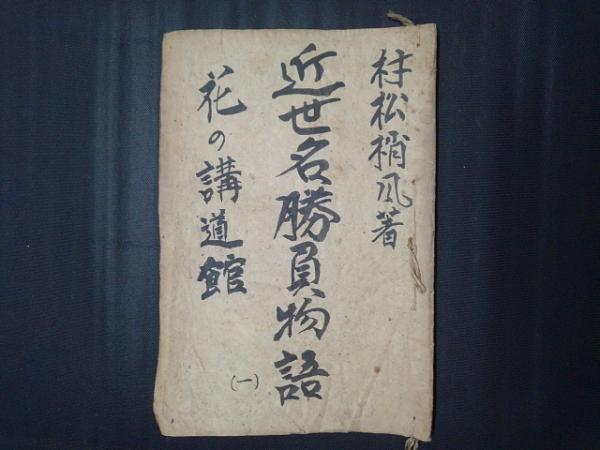 村松梢風著
近世名勝負物語
花の講道館
(一)